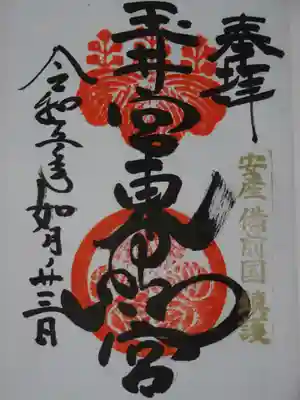 奉拝
安産 備前国 鎮護
玉井宮東照宮
令和五年如月廿三日